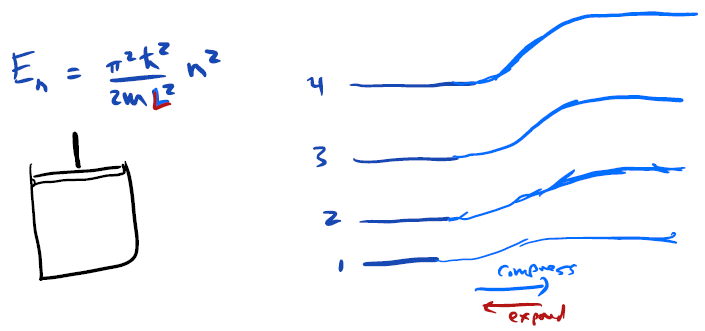 Eₙ = π²ħ²/2mL² n²
4
3
2
1
compress
expand